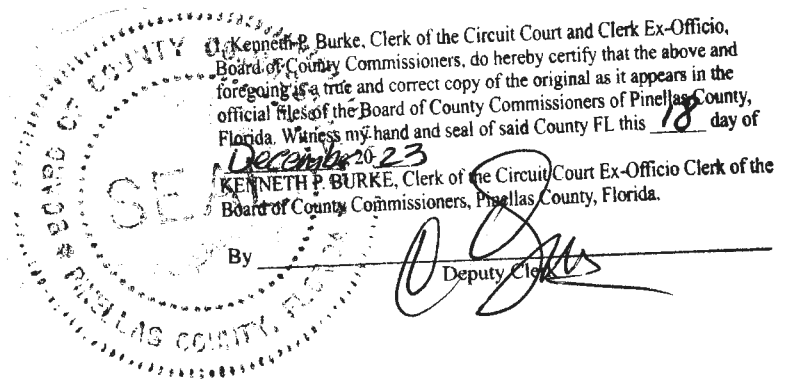 I, Kenneth P. Burke, Clerk of the Circuit Court and Clerk Ex-Officio,
Board of County Commissioners, do hereby certify that the above and
foregoing is a true and correct copy of the original as it appears in the
official files of the Board of County Commissioners of Pinellas County,
Florida. Witness my hand and seal of said County FL this 18 day of
December 20 23
KENNETH P. BURKE, Clerk of the Circuit Court Ex-Officio Clerk of the
Board of County Commissioners, Pinellas County, Florida.
By
Deputy Clerk
BOARD OF COUNTY
SEAL
PINELLAS COUNTY, FLORIDA